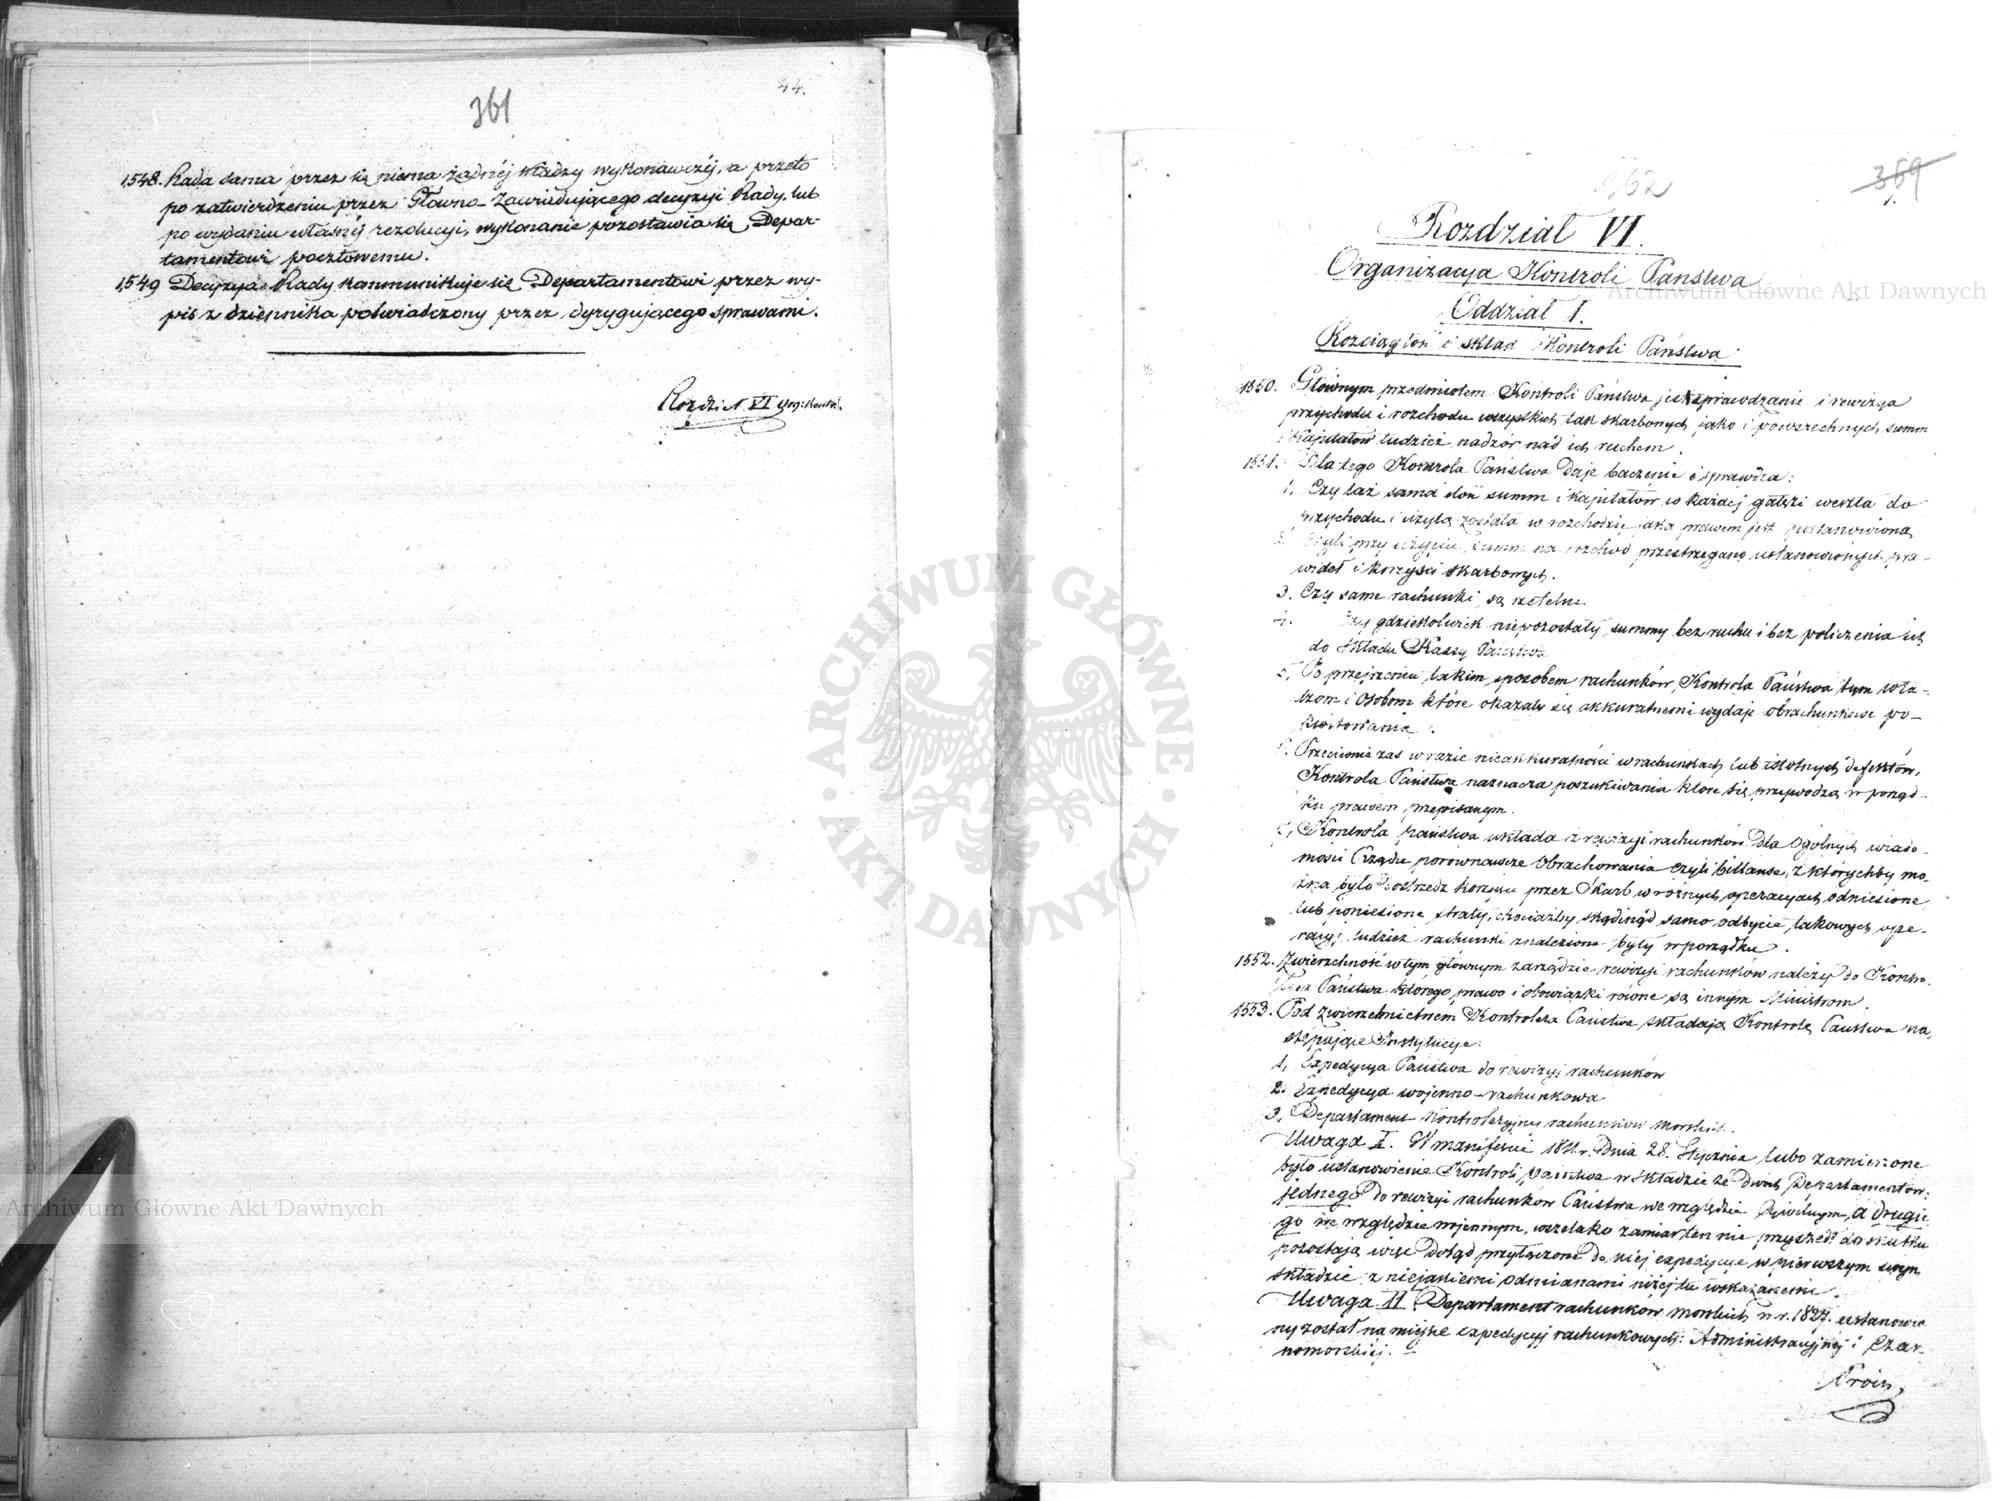 44.
361
1548. Rada sama przez się niema żadnéj władzy wykonawczéj, a przeto
po zatwierdzeniu przez Główno-Zawiadującego decyzyi Rady, lub
po wydaniu własnéj rezolucyi, wykonanie pozostawia się Depar-
tamentowi pocztowemu.
1549 Decyzya Rady kommunikuje się Departamentowi przez wy-
pis z dziennika poświadczony przez dyrygującego sprawami.
Rozdział VI Org: Kontr.
362
369
Rozdział VI.
Organizacya Kontroli Państwa
Oddział I.
Rozciągłość i skład Kontroli Państwa
1550. Głównym przedmiotem Kontroli Państwa jest sprawdzanie i rewizya
przychodu i rozchodu wszystkich tak skarbowych jako i powszechnych summ
i kapitałów tudzież nadzór nad ich ruchem.
1551. Dla tego Kontrola Państwa daje baczenie i sprawdza:
1, Czy taż sama ilość summ i kapitałów w każdej gałęzi weszła do
przychodu i użytą została w rozchodzie jaka prawem jest postanowioną
2. Czyli przy użyciu summ na rozchód przestrzegano ustanowionych pra-
wideł i korzyści skarbowych.
3. Czy same rachunki są rzetelne
4. Czy gdziekolwiek niepozostały summy bez ruchu i bez policzenia ich
do składu Kassy Państwa
5, Po przejrzeniu takim sposobem rachunków, Kontrola Państwa tym wła-
dzom i osobom które okazały się akkuratnemi wydaje obrachunkowe po-
kwitowania.
6. Przeciwnie zaś w razie nieakkuratności w rachunkach lub istotnych defektów,
Kontrola Państwa naznacza poszukiwania które się przywodzą w porząd-
ku prawem przepisanym.
7, Kontrola państwa układa z rewizyi rachunków dla ogólnych wiado-
mości Rządu porównawcze obrachowania czyli billanse, z którychby mo-
żna było dostrzedz korzyści przez Skarb w różnych operacyach odniesione
lub poniesione straty, chociażby skądinąd samo odbycie takowych ope-
racyi tudzież rachunki znalezione były w porządku.
1552. Zwierzchność w tym głównym zarządzie rewizyi rachunków należy do Kontro-
lera Państwa, którego prawo i obowiązki równe są innym Ministrom.
1553. Pod zwierzchnictwem Kontrolera Państwa składają Kontrolę Państwa na-
stępujące Instytucye:
1, Expedycya Państwa do rewizyi rachunków
2. Expedycya wojenno-rachunkowa
3, Departament Kontroleryjny rachunków morskich.
Uwaga I. W manifeście 1811 r. Dnia 28. Stycznia lubo zamierzone
było ustanowienie Kontroli państwa w składzie ze dwóch Departamentów:
jednego do rewizyi rachunków Państwa we względzie Cywilnym, a drugie-
go we względzie wojennym, wszelako zamiar ten nie przyszedł do skutku
pozostają więc dotąd przyłączone do niej expedycye w pierwszym swym
składzie z niejakiemi odmianami niżej tu wskazanemi.
Uwaga II Departament rachunków morskich w r. 1827. ustanowio-
ny został na miejsce expedycyj rachunkowych: Administracyjnéj i Czar-
nomorskiej.